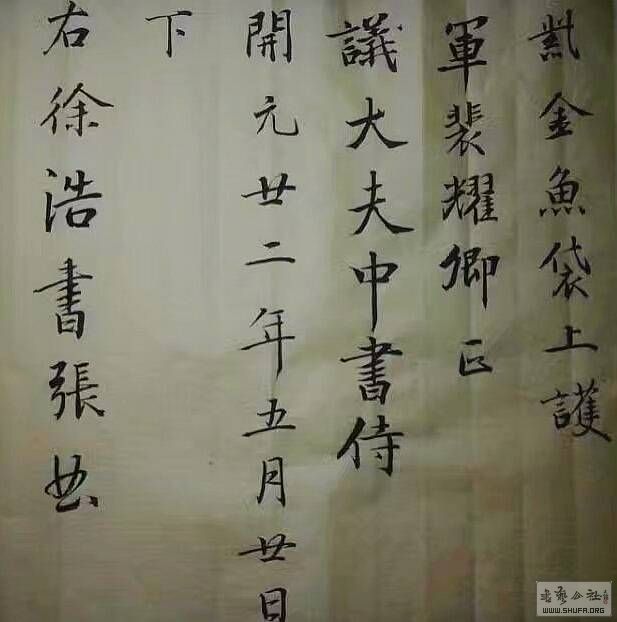 金魚袋上護
軍裴耀卿
議大夫中書侍
開元廿二年五月廿日
下
右徐浩書張曲
書藝公社
WWW.SHUFA.ORG